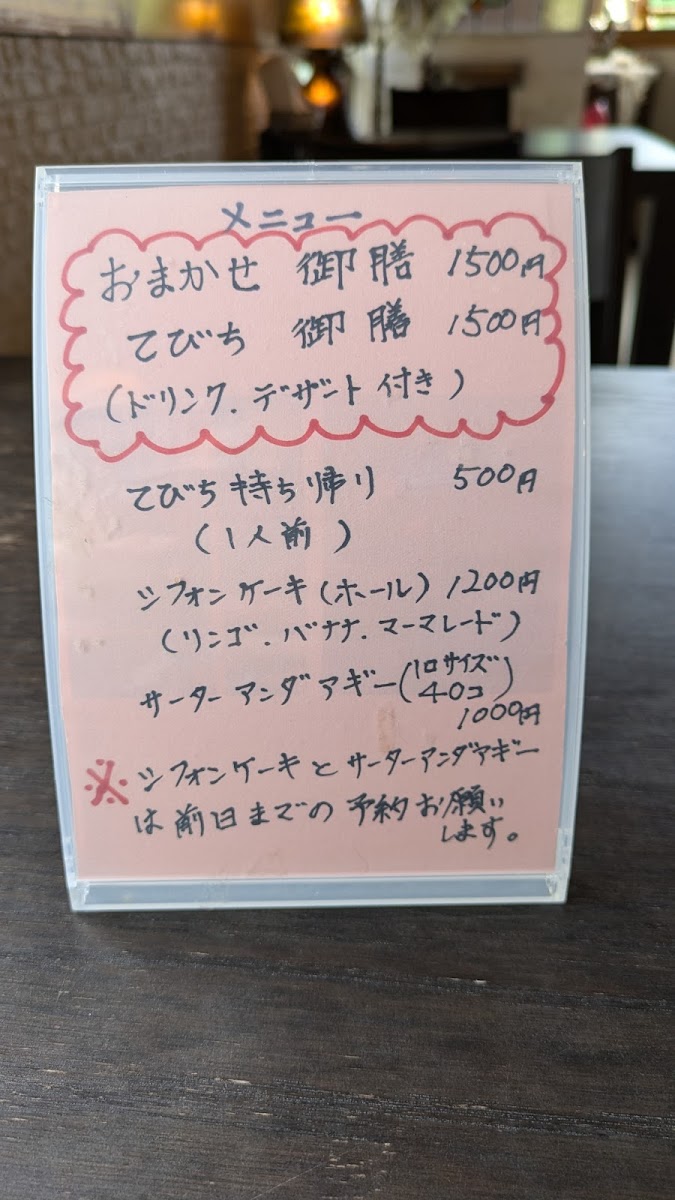 メニュー
おまかせ 御膳 1500円
てびち 御膳 1500円
(ドリンク．デザート付き)
てびち持ち帰り 500円
(1人前)
シフォンケーキ(ホール) 1200円
(リンゴ．バナナ．マーマレード)
サーターアンダアギー(1口サイズ
40コ)
1000円
※シフォンケーキとサーターアンダアギー
は前日までの予約お願い
します。